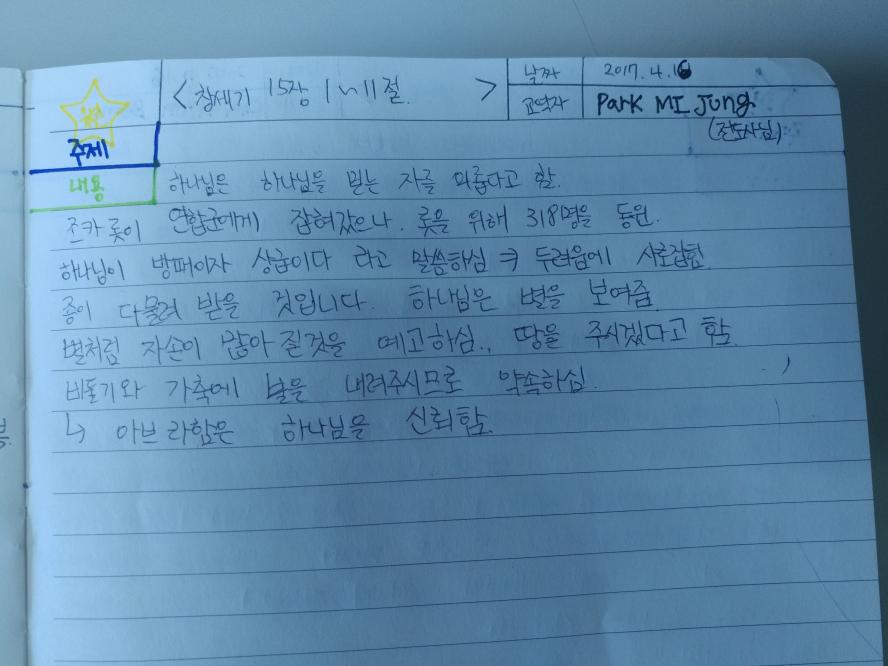 <창세기 15장 1~11절.>
날짜 2017.4.16
교역자 PARK MI Jung
(전도사님)
주제
내용
하나님은 하나님을 믿는 자를 의롭다고 함.
조카 롯이 연합군에게 잡혀갔으나. 롯을 위해 318명을 동원.
하나님이 방패이자 상급이다 라고 말씀하심 두려움에 사로잡힘.
종이 다물려 받을 것입니다. 하나님은 별을 보여줌.
별처럼 자손이 많아 질것을 예고하심., 땅을 주시겠다고 함.
비둘기와 가축에 불을 내려주시므로 약속하심.
↳ 아브라함은 하나님을 신뢰함.